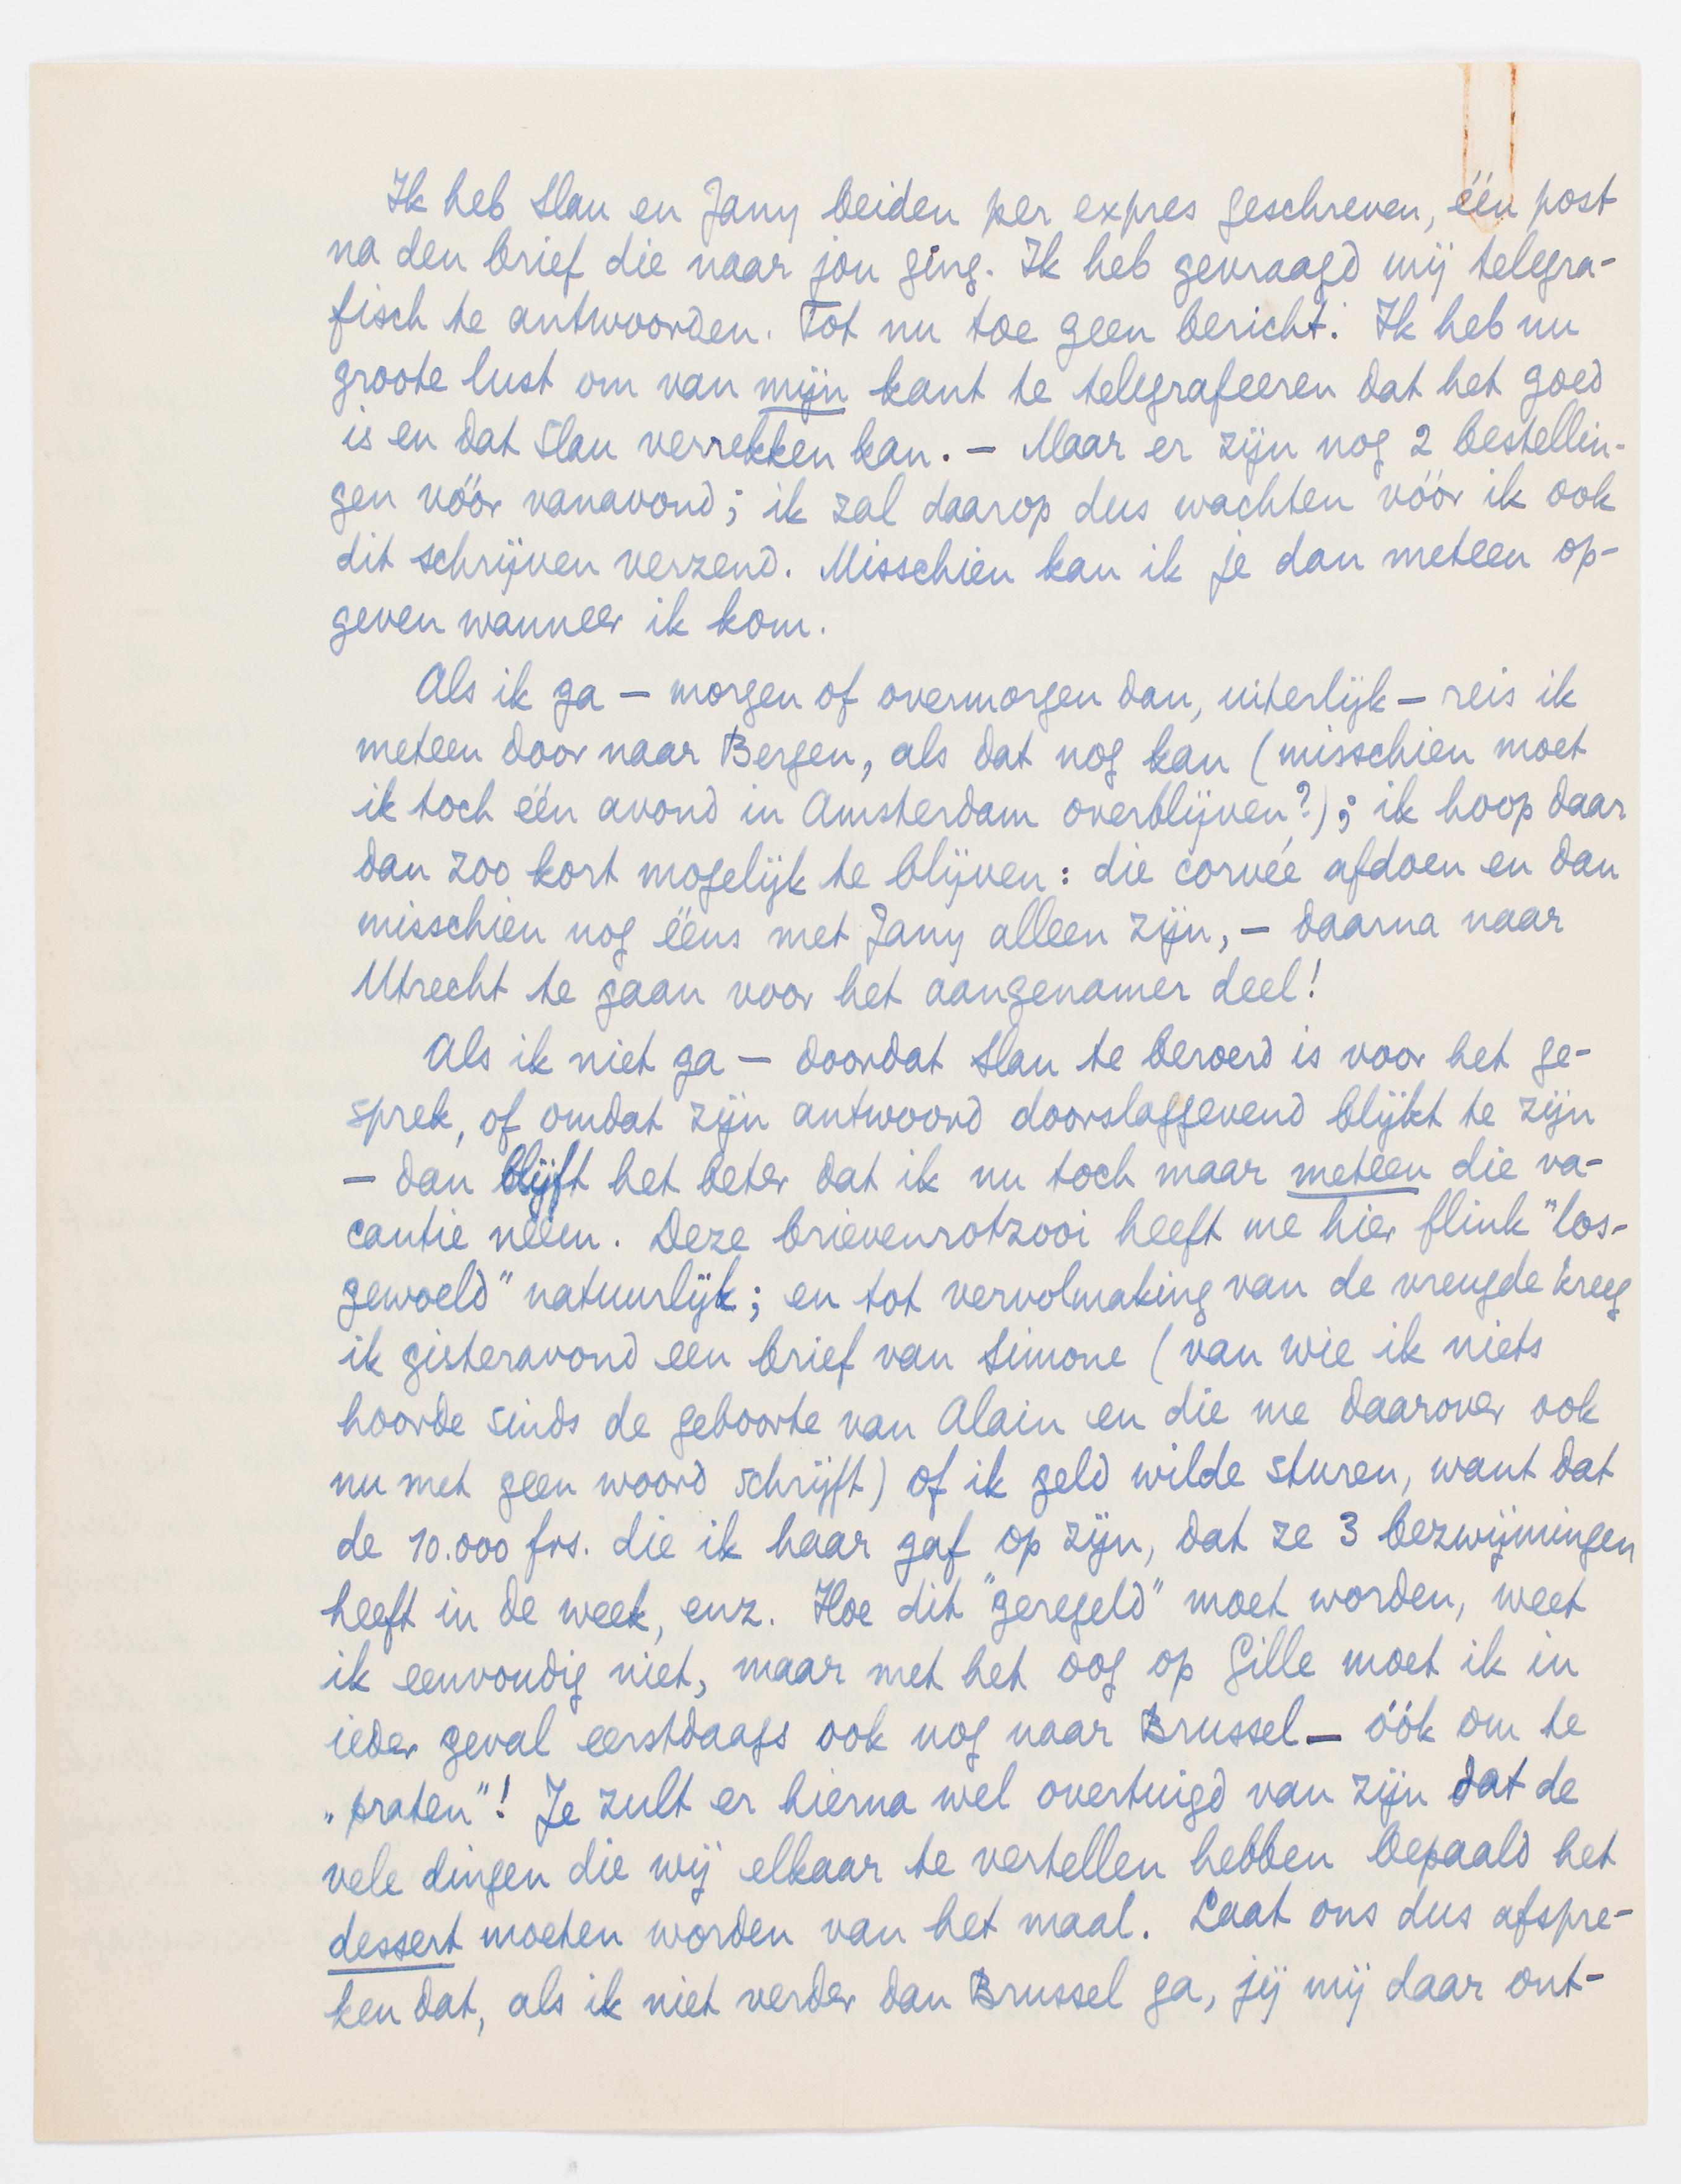 Ik heb Slau en Jany beiden per expres geschreven, één post
na den brief die naar jou ging. Ik heb gevraagd mij telegra-
fisch te antwoorden. Tot nu toe geen bericht. Ik heb nu
groote lust om van mijn kant te telegrafeeren dat het goed
is en dat Slau verrekken kan. — Maar er zijn nog 2 bestellin-
gen vóór vanavond; ik zal daarop dus wachten vóór ik ook
dit schrijven verzend. Misschien kan ik je dan meteen op-
geven wanneer ik kom.
Als ik ga — morgen of overmorgen dan, uiterlijk — reis ik
meteen door naar Bergen, als dat nog kan (misschien moet
ik toch één avond in Amsterdam overblijven?); ik hoop daar
dan zoo kort mogelijk te blijven: die corvée afdoen en dan
misschien nog ééns met Jany alleen zijn, — daarna naar
Utrecht te gaan voor het aangenamer deel!
Als ik niet ga — doordat Slau te beroerd is voor het ge-
sprek, of omdat zijn antwoord doorslaggevend blijkt te zijn
— dan blijft het beter dat ik nu toch maar meteen die va-
cantie neem. Deze brievenrotzooi heeft me hier flink "los-
gewoeld" natuurlijk; en tot vervolmaking van de vreugde kreeg
ik gisteravond een brief van Simone (van wie ik niets
hoorde sinds de geboorte van Alain en die me daarover ook
nu met geen woord schrijft) of ik geld wilde sturen, want dat
de 10.000 frs. die ik haar gaf op zijn, dat ze 3 bezwijmingen
heeft in de week, enz. Hoe dit "geregeld" moet worden, weet
ik eenvoudig niet, maar met het oog op Gille moet ik in
ieder geval eerstdaags ook nog naar Brussel — óók om te
„praten"! Je zult er hierna wel overtuigd van zijn dat de
vele dingen die wij elkaar te vertellen hebben bepaald het
dessert moeten worden van het maal. Laat ons dus afspre-
ken dat, als ik niet verder dan Brussel ga, jij mij daar ont-